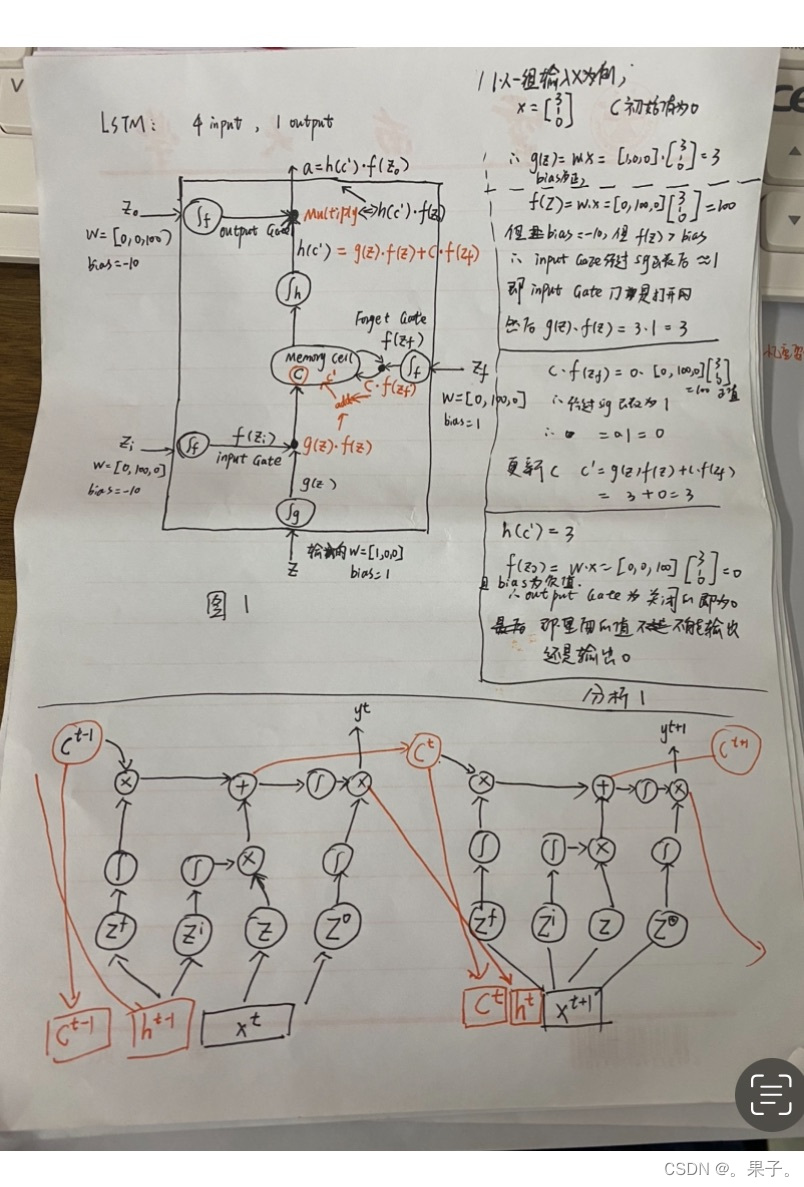 LSTM: 4 input, 1 output
a=h(c')·f(Zo)
Zo
W=[0,0,100)
bias=-10
∫f
output Gate
Multiply<=>h(c')·f(Z)
h(c')=g(z)·f(z)+C·f(Zf)
∫h
Forget Gate
f(Zf)
Memory cell
C
c'
∫f
Zf
C·f(Zf)
add
W=[0,100,0]
bias=1
Zi
W=[0,100,0]
bias=-10
∫f
f(Zi)
input Gate
g(z)·f(z)
g(z)
∫g
Z
的W=[1,0,0]
bias=1
图1
以一组输入X为例,
x=[3 1 0] C初始值为0
∴g(z)=W·X=[1,0,0]·[3 1 0]=3
f(Z)=W·X=[0,100,0][3 1 0]=100
bias=-10,但f(z)>bias
∴input Gate经过sg函数后≈1
即input Gate门是打开的
然后g(z)·f(z)=3·1=3
C·f(Zf)=0·[0,100,0][3 1 0]
=100
∴经过sg函数为1
∴ =0·1=0
更新C C'=g(z)f(z)+C·f(Zf)
=3+0=3
h(c')=3
f(Zo)=W·X=[0,0,100][3 1 0]=0
且bias为负值.
∴output Gate为关闭的即为0
那里面的值不能输出
还是输出0
分析1
C^t-1
y^t
C^t
y^t+1
C^t+1
× + ∫ × × + ∫ ×
∫ ∫ × ∫ ∫ ∫ × ∫
Z^f Z^i Z Z^o Z^f Z^i Z Z^o
C^t-1 h^t-1 X^t C^t h^t X^t+1
CSDN @。果子。